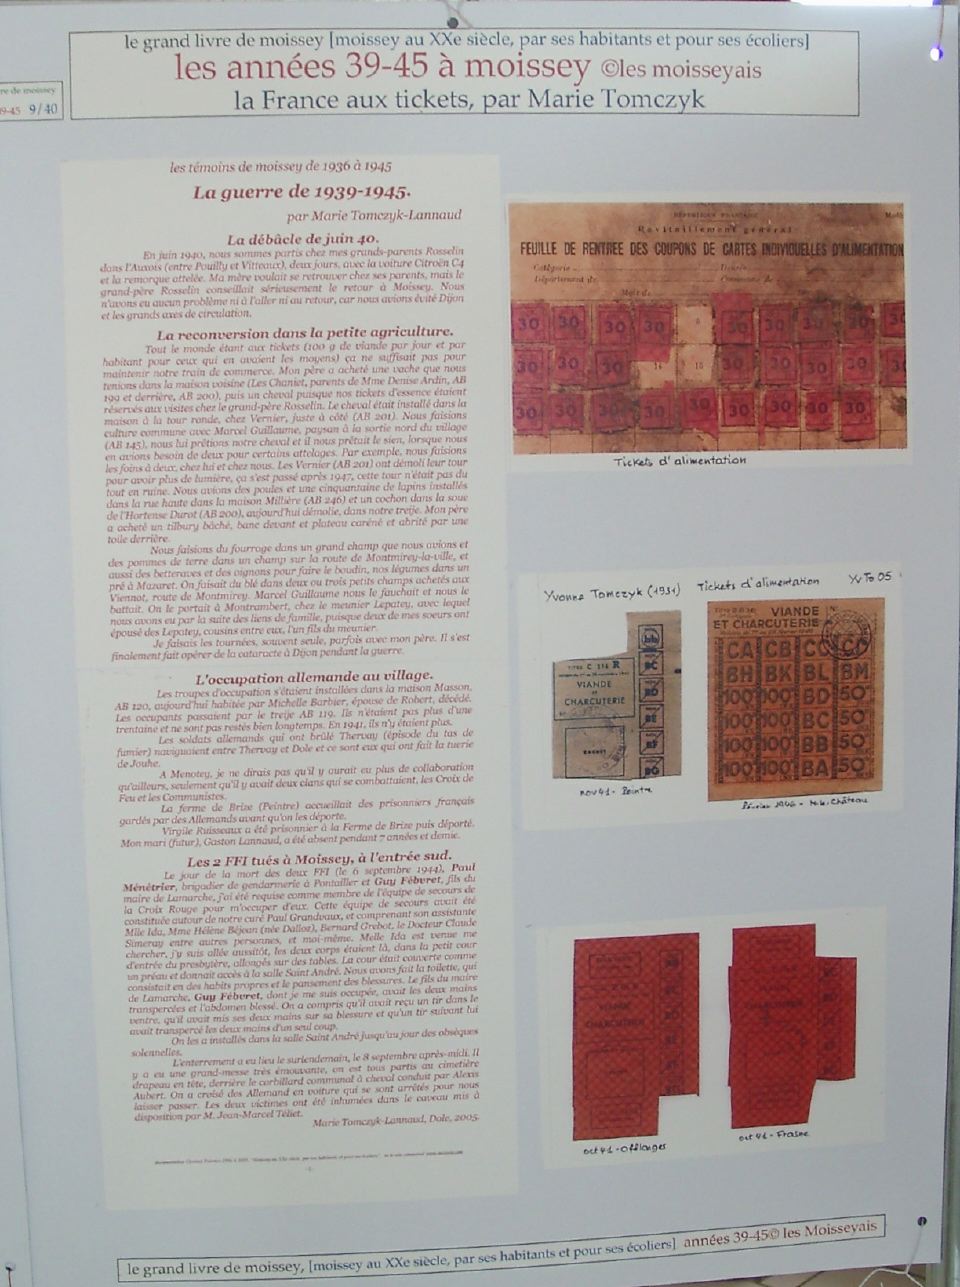 le grand livre de moissey [moissey au XXe siècle, par ses habitants et pour ses écoliers]
les années 39-45 à moissey ©les moisseyais
la France aux tickets, par Marie Tomczyk
re de moissey
39-45 9/40
les témoins de moissey de 1936 à 1945
La guerre de 1939-1945.
par Marie Tomczyk-Lannaud
La débâcle de juin 40.
En juin 1940, nous sommes partis chez mes grands-parents Rosselin
dans l'Auxois (entre Pouilly et Vitteaux), deux jours, avec la voiture Citroën C4
et la remorque attelée. Ma mère voulait se retrouver chez ses parents, mais le
grand-père Rosselin conseillait sérieusement le retour à Moissey. Nous
n'avons eu aucun problème ni à l'aller ni au retour, car nous avions évité Dijon
et les grands axes de circulation.
La reconversion dans la petite agriculture.
Tout le monde étant aux tickets (100 g de viande par jour et par
habitant pour ceux qui en avaient les moyens) ça ne suffisait pas pour
maintenir notre train de commerce. Mon père a acheté une vache que nous
tenions dans la maison voisine (Les Chaniet, parents de Mme Denise Ardin, AB
199 et derrière, AB 200), puis un cheval puisque nos tickets d'essence étaient
réservés aux visites chez le grand-père Rosselin. Le cheval était installé dans la
maison à la tour ronde, chez Vernier, juste à côté (AB 201). Nous faisions
culture commune avec Marcel Guillaume, paysan à la sortie nord du village
(AB 145), nous lui prêtions notre cheval et il nous prêtait le sien, lorsque nous
en avions besoin de deux pour certains attelages. Par exemple, nous faisions
les foins à deux, chez lui et chez nous. Les Vernier (AB 201) ont démoli leur tour
pour avoir plus de lumière, ça s'est passé après 1947, cette tour n'était pas du
tout en ruine. Nous avions des poules et une cinquantaine de lapins installés
dans la rue haute dans la maison Millière (AB 246) et un cochon dans la soue
de l'Hortense Durot (AB 200), aujourd'hui démolie, dans notre treije. Mon père
a acheté un tilbury bâché, banc devant et plateau caréné et abrité par une
toile derrière.
Nous faisions du fourrage dans un grand champ que nous avions et
des pommes de terre dans un champ sur la route de Montmirey-la-ville, et
aussi des betteraves et des oignons pour faire le boudin, nos légumes dans un
pré à Mazaret. On faisait du blé dans deux ou trois petits champs achetés aux
Viennot, route de Montmirey. Marcel Guillaume nous le fauchait et nous le
battait. On le portait à Montrambert, chez le meunier Lepatey, avec lequel
nous avons eu par la suite des liens de famille, puisque deux de mes soeurs ont
épousé des Lepatey, cousins entre eux, l'un fils du meunier.
Je faisais les tournées, souvent seule, parfois avec mon père. Il s'est
finalement fait opérer de la cataracte à Dijon pendant la guerre.
L'occupation allemande au village.
Les troupes d'occupation s'étaient installées dans la maison Masson,
AB 120, aujourd'hui habitée par Michelle Barbier, épouse de Robert, décédé.
Les occupants passaient par le treije AB 119. Ils n'étaient pas plus d'une
trentaine et ne sont pas restés bien longtemps. En 1941, ils n'y étaient plus.
Les soldats allemands qui ont brûlé Thervay (épisode du tas de
fumier) naviguaient entre Thervay et Dole et ce sont eux qui ont fait la tuerie
de Jouhe.
A Menotey, je ne dirais pas qu'il y aurait eu plus de collaboration
qu'ailleurs, seulement qu'il y avait deux clans qui se combattaient, les Croix de
Feu et les Communistes.
La ferme de Brize (Peintre) accueillait des prisonniers français
gardés par des Allemands avant qu'on les déporte.
Virgile Ruisseaux a été prisonnier à la Ferme de Brize puis déporté.
Mon mari (futur), Gaston Lannaud, a été absent pendant 7 années et demie.
Les 2 FFI tués à Moissey, à l'entrée sud.
Le jour de la mort des deux FFI (le 6 septembre 1944), Paul
Ménétrier, brigadier de gendarmerie à Pontailler et Guy Fébvret, fils du
maire de Lamarche, j'ai été requise comme membre de l'équipe de secours de
la Croix Rouge pour m'occuper d'eux. Cette équipe de secours avait été
constituée autour de notre curé Paul Grandvaux, et comprenant son assistante
Mlle Ida, Mme Hélène Béjean (née Dalloz), Bernard Grebot, le Docteur Claude
Simeray entre autres personnes, et moi-même. Melle Ida est venue me
chercher, j'y suis allée aussitôt, les deux corps étaient là, dans la petit cour
d'entrée du presbytère, allongés sur des tables. La cour était couverte comme
un préau et donnait accès à la salle Saint André. Nous avons fait la toilette, qui
consistait en des habits propres et le pansement des blessures. Le fils du maire
de Lamarche, Guy Fébvret, dont je me suis occupée, avait les deux mains
transpercées et l'abdomen blessé. On a compris qu'il avait reçu un tir dans le
ventre, qu'il avait mis ses deux mains sur sa blessure et qu'un tir suivant lui
avait transpercé les deux mains d'un seul coup.
On les a installés dans la salle Saint André jusqu'au jour des obsèques
solennelles.
L'enterrement a eu lieu le surlendemain, le 8 septembre après-midi. Il
y a eu une grand-messe très émouvante, on est tous partis au cimetière
drapeau en tête, derrière le corbillard communal à cheval conduit par Alexis
Aubert. On a croisé des Allemand en voiture qui se sont arrêtés pour nous
laisser passer. Les deux victimes ont été inhumées dans le caveau mis à
disposition par M. Jean-Marcel Téliet.
Marie Tomczyk-Lannaud, Dole, 2005.
RÉPUBLIQUE FRANÇAISE
Ravitaillement général
FEUILLE DE RENTREE DES COUPONS DE CARTES INDIVIDUELLES D'ALIMENTATION
Catégorie
Département de
Mois de
30 30 30 30 30 30 30 30 30
30 30 30 14 15 30 30 30 30
30 30 30 30 30 30 30 30 30
Tickets d'alimentation
Yvonne Tomczyk (1931) Tickets d'alimentation YvTo 05
VIANDE
et
CHARCUTERIE
CACHET
BC
BD
BE
BF
BG
nov 41 - Peintre
VIANDE
ET CHARCUTERIE
CA CB CC CD
BH BK BL BM
100 100 BD 50
100 100 BC 50
100 100 BB 50
100 100 BA 50
février 1946 - M.le.Château
CHARCUTERIE
oct 41 - Offlanges
oct 41 - Frasne
le grand livre de moissey, [moissey au XXe siècle, par ses habitants et pour ses écoliers] années 39-45© les Moisseyais